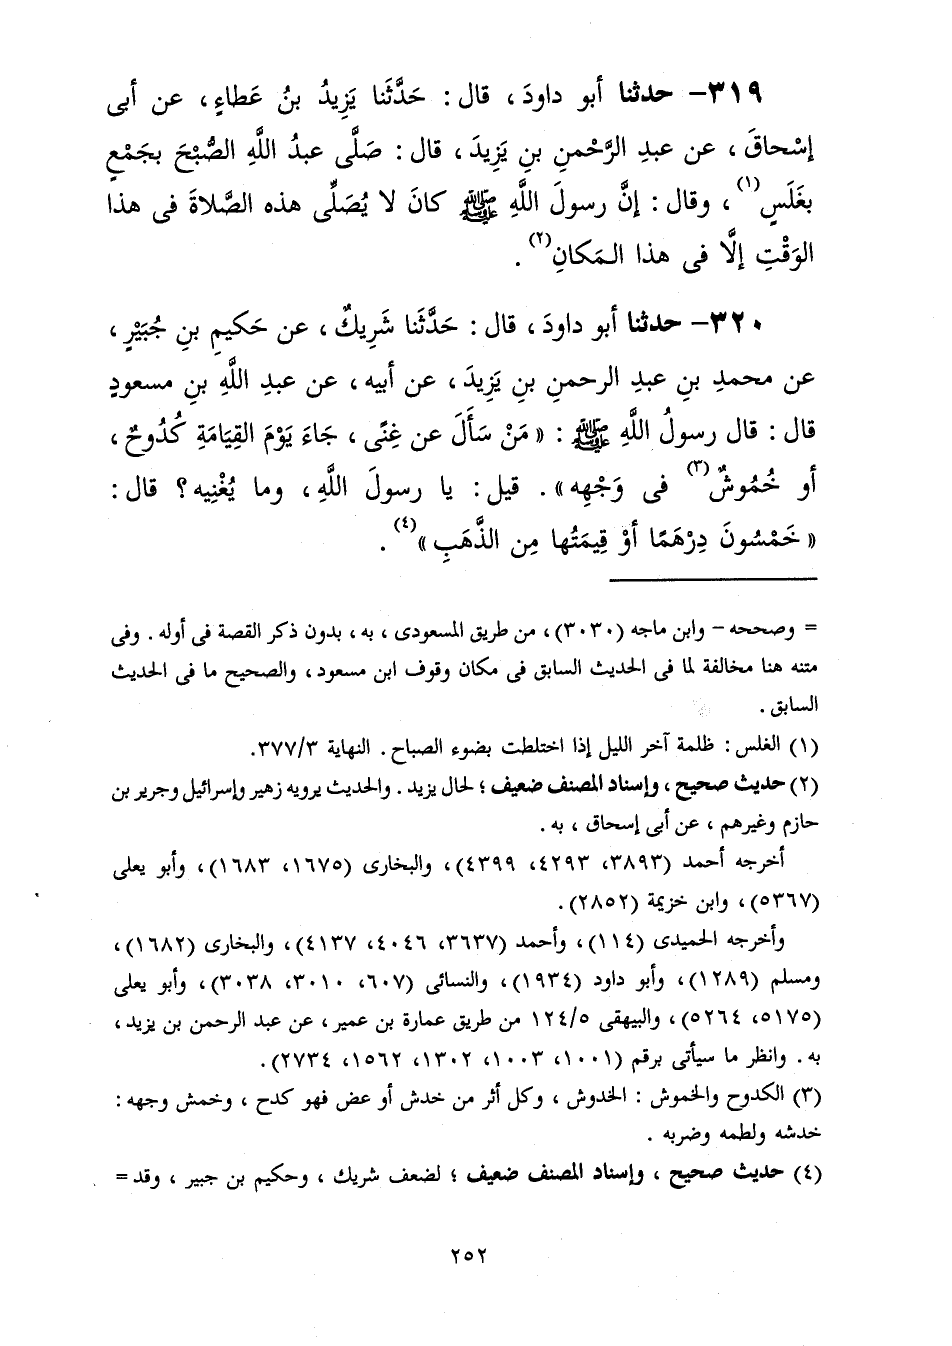 ٣١٩- حدثنا أبو داودَ ، قال : حَدَّثَنا يَزِيدُ بنُ عَطاءٍ ، عن أبى
إسْحاقَ ، عن عبدِ الرَّحْمنِ بنِ يَزِيدَ ، قال : صَلَّى عبدُ اللَّهِ الصُّبْحَ بجَمْعٍ
بغَلَسٍ(١) ، وقال : إنَّ رسولَ اللَّهِ ﷺ كانَ لا يُصَلِّى هذه الصَّلاةَ فى هذا
الوَقْتِ إلَّا فى هذا المَكانِ(٢) .
٣٢٠- حدثنا أبو داودَ ، قال : حَدَّثَنا شَرِيكٌ ، عن حَكيمِ بنِ جُبَيْرٍ ،
عن محمدِ بنِ عبدِ الرحمنِ بنِ يَزِيدَ ، عن أبيه ، عن عبدِ اللَّهِ بنِ مسعودٍ
قال : قال رسولُ اللَّهِ ﷺ : « مَنْ سَأَلَ عن غِنًى ، جَاءَ يَوْمَ القِيَامَةِ كُدُوحٌ ،
أو خُمُوشٌ(٣) فى وَجْهِه » . قيل : يا رسولَ اللَّهِ ، وما يُغْنِيه ؟ قال :
« خَمْسُونَ دِرْهَمًا أوْ قِيمَتُها مِن الذَّهَبِ »(٤) .
= وصححه - وابن ماجه (٣٠٣٠) ، من طريق المسعودى ، به ، بدون ذكر القصة فى أوله . وفى
متنه هنا مخالفة لما فى الحديث السابق فى مكان وقوف ابن مسعود ، والصحيح ما فى الحديث
السابق .
(١) الغلس : ظلمة آخر الليل إذا اختلطت بضوء الصباح . النهاية ٣/٣٧٧.
(٢) حديث صحيح ، وإسناد المصنف ضعيف ؛ لحال يزيد . والحديث يرويه زهير وإسرائيل وجرير بن
حازم وغيرهم ، عن أبى إسحاق ، به .
أخرجه أحمد (٣٨٩٣، ٤٢٩٣، ٤٣٩٩) ، والبخارى (١٦٧٥، ١٦٨٣) ، وأبو يعلى
(٥٣٦٧) ، وابن خزيمة (٢٨٥٢) .
وأخرجه الحميدى (١١٤) ، وأحمد (٣٦٣٧، ٤٠٤٦، ٤١٣٧) ، والبخارى (١٦٨٢) ،
ومسلم (١٢٨٩) ، وأبو داود (١٩٣٤) ، والنسائى (٦٠٧، ٣٠١٠، ٣٠٣٨) ، وأبو يعلى
(٥١٧٥، ٥٢٦٤) ، والبيهقى ٥/١٢٤ من طريق عمارة بن عمير ، عن عبد الرحمن بن يزيد ،
به . وانظر ما سيأتى برقم (١٠٠١، ١٠٠٣، ١٣٠٢، ١٥٦٢، ٢٧٣٤) .
(٣) الكدوح والخموش : الخدوش ، وكل أثر من خدش أو عض فهو كدح ، وخمش وجهه :
خدشه ولطمه وضربه .
(٤) حديث صحيح ، وإسناد المصنف ضعيف ؛ لضعف شريك ، وحكيم بن جبير ، وقد =
٢٥٢